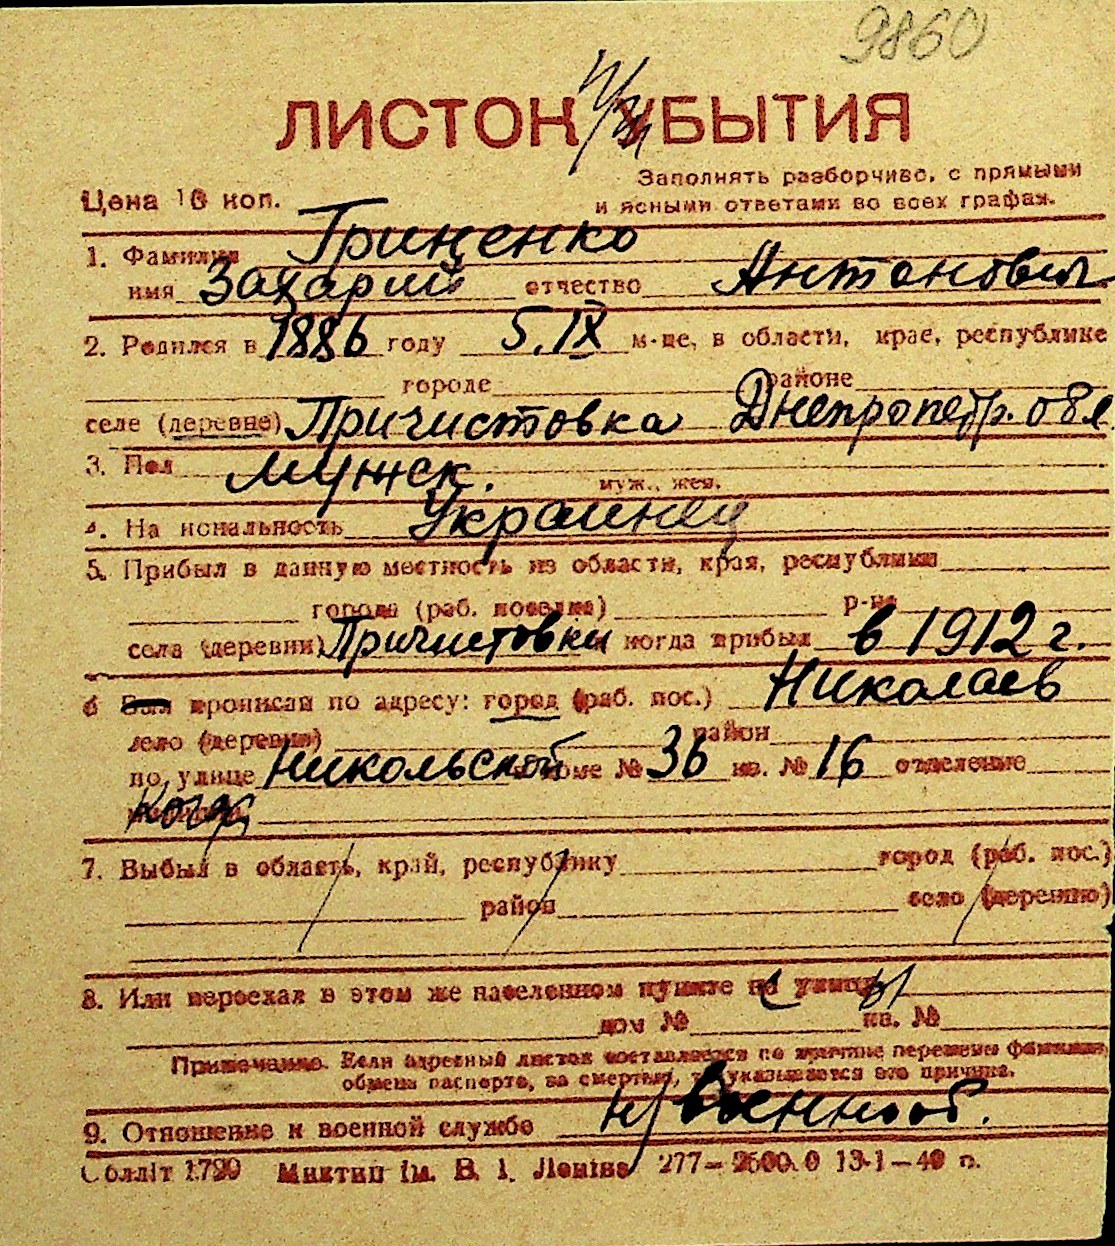 9860
ЛИСТОК УБЫТИЯ
Заполнять разборчиво, с прямыми
Цена 10 коп. и ясными ответами во всех графах.
1. Фамилия Гриценко
имя Захарий отчество Антонович
2. Родился в 1886 году 5.IX м-це, в области, крае, республике
городе районе
селе (деревне) Причистовка Днепропетр. обл.
3. Пол мужск. муж., жен.
4. Национальность Украинец
5. Прибыл в данную местность из области, края, республики
города (раб. поселка) р-на
села (деревни) Причистовки когда прибыл в 1912 г.
6 Был прописан по адресу: город (раб. пос.) Николаев
село (деревне) район
по улице Никольской доме № 36 кв. № 16 отделение
7. Выбыл в область, край, республику город (раб. пос.)
район село (деревню)
8. Или переехал в этом же населенном пункте на улицу
дом № кв. №
Примечание. Если адресный листок составляется по причине перемены фамилии,
обмена паспорта, за смертью, то указывается эта причина.
9. Отношение к военной службе н/военнооб.
Обллiт 1799 Миктип iм. В. I. Ленiна 277—2500.0 13-1—40 р.